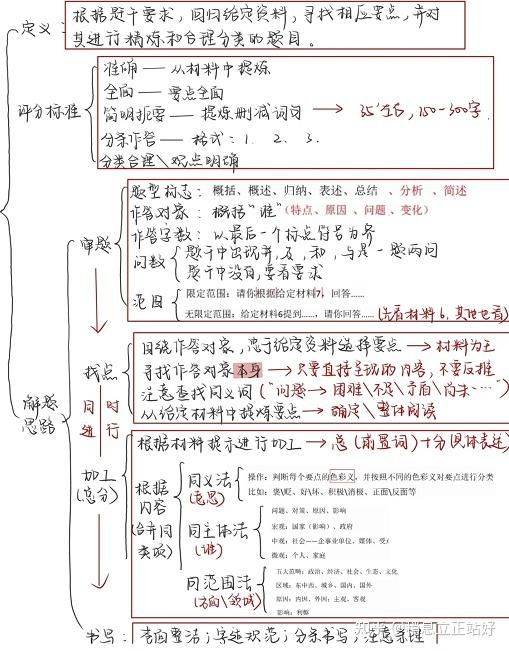 定义:
根据题干要求,回归给定资料,寻找相应要点,并对
其进行精炼和合理分类的题目。
评分标准
准确——从材料中提炼
全面——要点全面
简明扼要——提炼删减词句
→ 35'左右,150-300字.
分条作答——格式:1. 2. 3.
分类合理\观点明确
解题
思路
审题
题型标志:概括、概述、归纳、表述、总结、分析、简述
作答对象:概括"谁"(特点、原因、问题、变化)
作答字数:以最后一个标点符号为界
问数
题干中出现并,及,和,与是一题两问
题干中没有,要看要求
范围
限定范围:请你根据给定材料7,回答......
无限定范围:给定材料6提到......,请你回答......(先看材料6,其他也看)
找点
同时
进行
围绕作答对象,忠于给定资料选择要点→材料为王
寻找作答对象本身→只要直接呈现的内容,不要反推
注意查找同义词("问题→困难\不足\矛盾\尚未…")
从给定材料中提炼要点→确定\整体阅读
加工
(总分)
根据材料提示进行加工→总(前置词)+分(具体表述)
根据
内容
(合并同
类项)
同义法
(意思)
操作:判断每个要点的色彩义,并按照不同的色彩义对要点进行分类
比如:褒\贬、好\坏、积极\消极、正面\反面等
同主体法
(谁)
问题、对策、原因、影响
宏观:国家(影响)、政府
中观:社会——企事业单位、媒体、受
微观:个人、家庭
同范围法
(方向\领域)
五大范畴:政治、经济、社会、生态、文化
区域:东中西、城乡、国内、国外
原因:内因、外因;主观、客观
影响:利弊
书写:卷面整洁;字迹规范;分条书写;注意条理
知乎 @瑞息立正站好